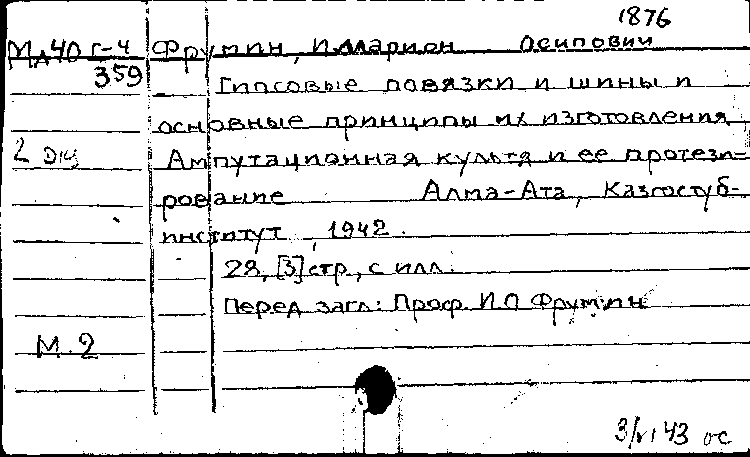 1876
Мд40 г-4 Фрумин, Илларион Осипович
359 Гипсовые повязки и шины и
основные принципы их изготовления
2 Ампутационная культя и ее протези-
рование Алма-Ата, Казгостуб-
институт, 1942.
28, [3] стр., с илл.
Перед загл: Проф. И.О Фрумин
М. 2
3/VI 43 ос